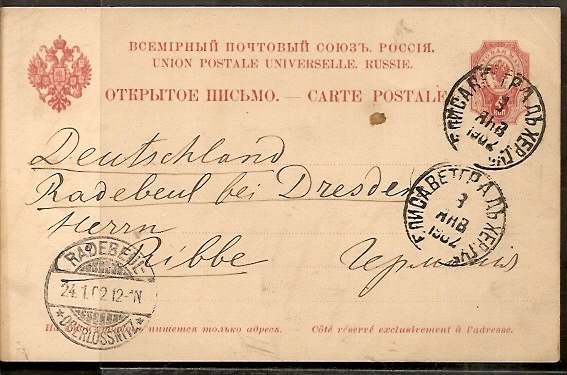 ВСЕМІРНЫЙ ПОЧТОВЫЙ СОЮЗЪ. РОССІЯ.
UNION POSTALE UNIVERSELLE. RUSSIE.
ОТКРЫТОЕ ПИСЬМО. — CARTE POSTALE
ЕЛИСАВЕТГРАДЪ ХЕР. ГУБ.
ЯНВ
1902
Deutschland
Radebeul bei Dresden
Herrn
Ribbe
Германія
ЕЛИСАВЕТГРАДЪ ХЕР. ГУБ.
ЯНВ
1902
RADEBEUL
24.1.02.12-1N
*OBERLÖSSNITZ*
На этой сторонѣ пишется только адресъ. - Côté réservé exclusivement à l'adresse.